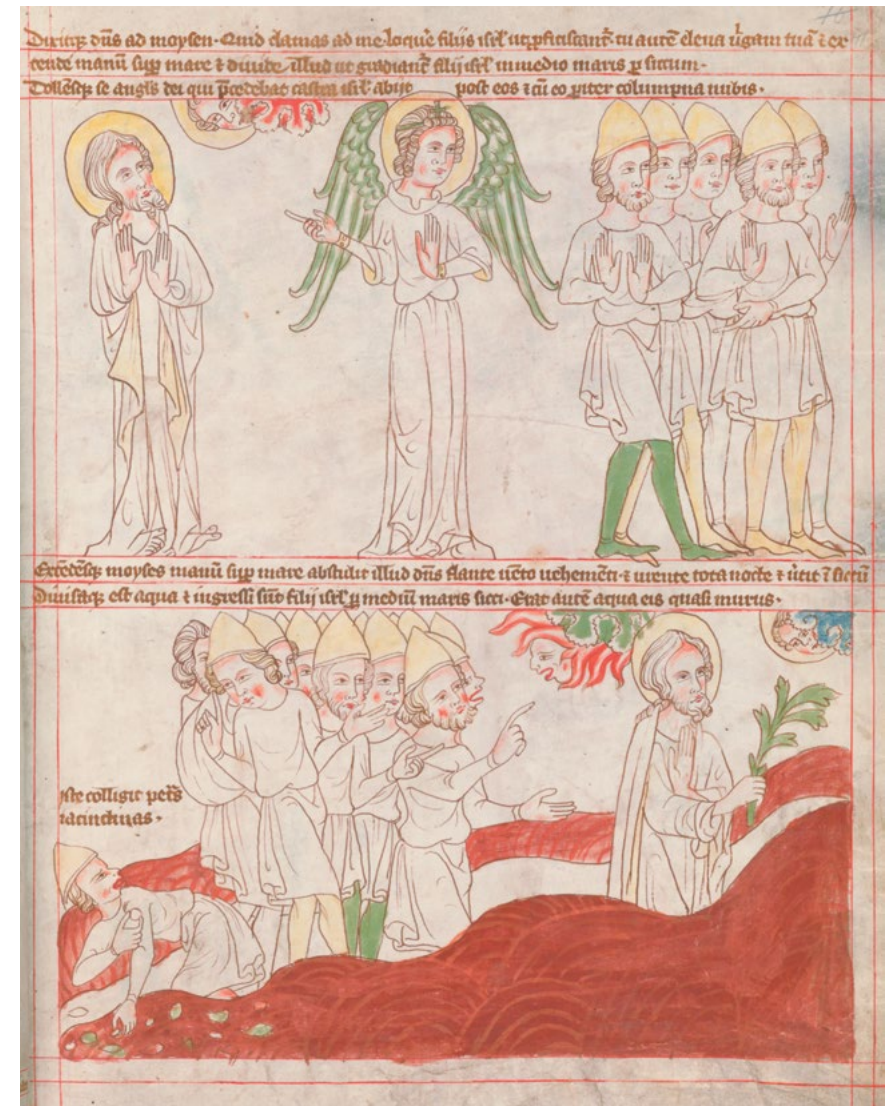 Dixitqz dn̄s ad moysen. Quid clamas ad me loqu'e filijs isrl' ut pficiscant᷑. tu aut̄e eleua uirgam tuā ⁊ ex
tende manū supꝑ mare ⁊ diuide illud ut gradiant᷑ filij isrl' in medio maris p siccum.
Tollēsqz se angl's dei qui p̄cedebat castra isrl' abijt post eos ⁊ cū eo pariter columpna nubis.
moyses manū supꝑ mare abstulit illud dn̄s flante uēto uehemēti ⁊ urente tota nocte ⁊ ūtit ī siccū
Diuisaqz est aqua ⁊ ingressi sūt filij isrl' p mediū maris sicci. Erat aut̄e aqua eis quasi murus.
Iste colligit pet's
iacinctinas.